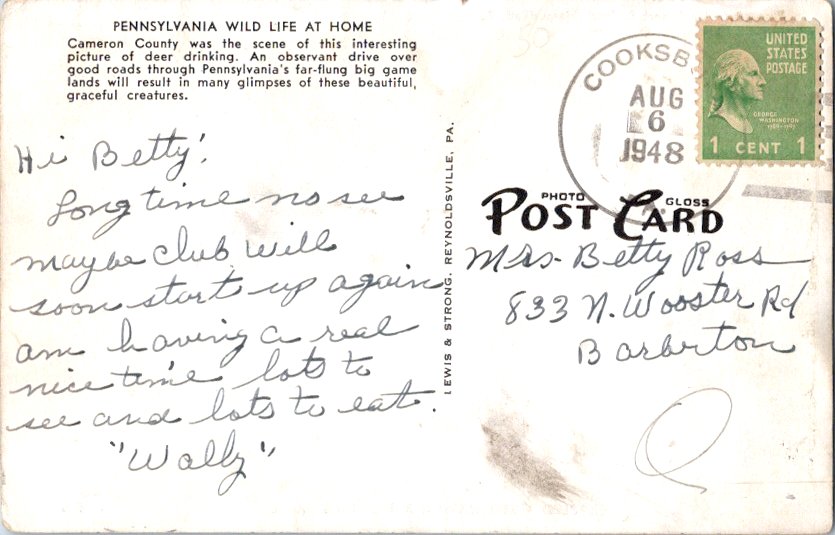 PENNSYLVANIA WILD LIFE AT HOME
Cameron County was the scene of this interesting
picture of deer drinking. An observant drive over
good roads through Pennsylvania's far-flung big game
lands will result in many glimpses of these beautiful,
graceful creatures.
Hi Betty!
Long time no see
maybe club will
soon start up again
am having a real
nice time lots to
see and lots to eat.
"Wally"
LEWIS & STRONG, REYNOLDSVILLE, PA.
COOKSB
AUG
6
1948
UNITED
STATES
POSTAGE
GEORGE
WASHINGTON
1 CENT 1
PHOTO GLOSS
POST CARD
Mrs. Betty Ross
833 N. Wooster Rd
Barberton